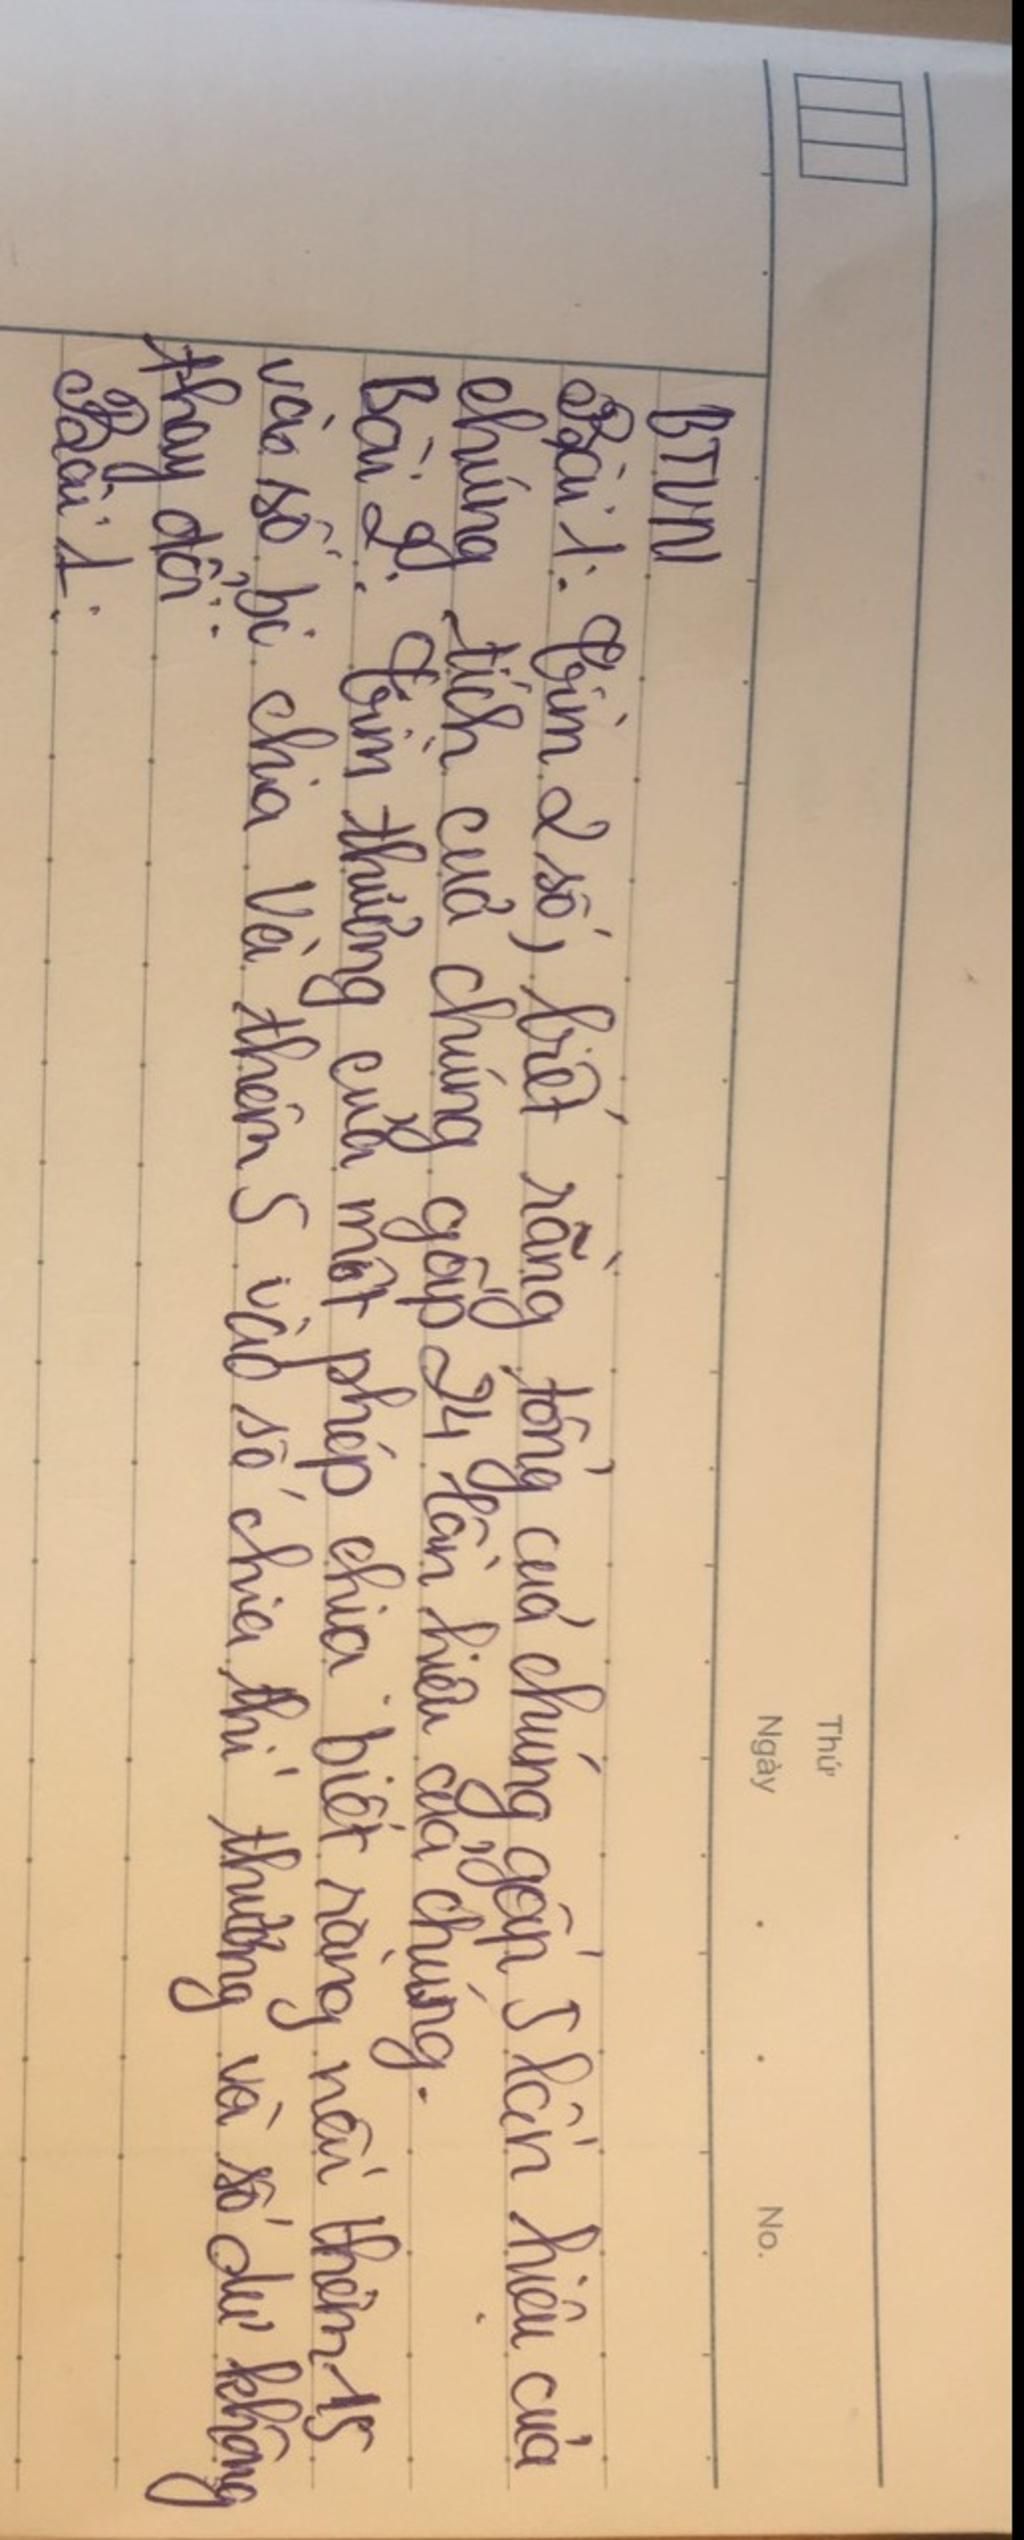 Thứ
Ngày . . No.
BTVN
Bài 1: Tìm 2 số, biết rằng tổng của chúng gấp 5 lần hiệu của
chúng, tích của chúng gấp 24 lần hiệu của chúng.
Bài 2: Tìm thương của một phép chia biết rằng nếu thêm 15
vào số bị chia Và thêm 5 vào số chia thì thương và số dư không
thay đổi.
Bài 1: